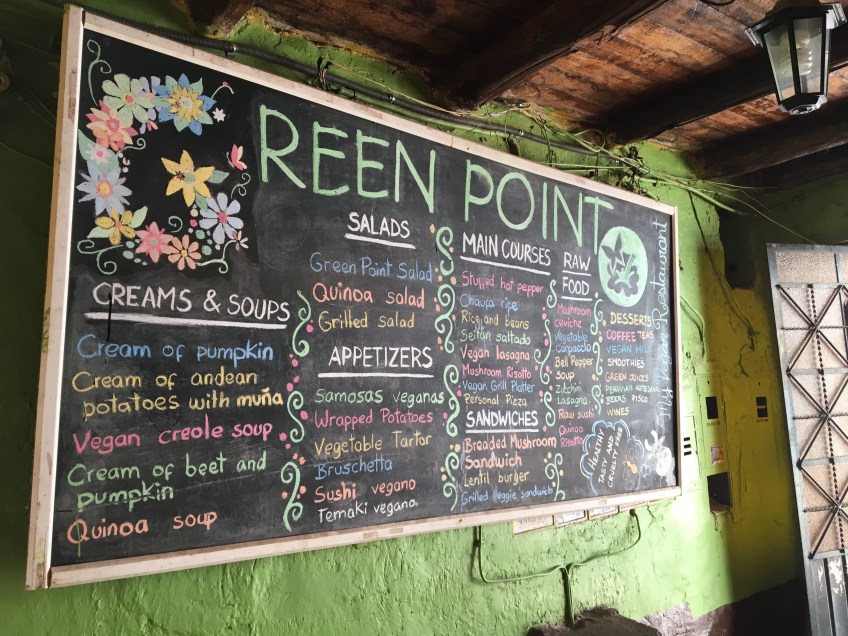 REEN POINT
My Veggie Restaurant
CREAMS & SOUPS
Cream of pumpkin
Cream of andean
potatoes with muña
Vegan creole soup
Cream of beet and
pumpkin
Quinoa soup
SALADS
Green Point Salad
Quinoa salad
Grilled salad
APPETIZERS
Samosas veganas
Wrapped Potatoes
Vegetable Tartar
Bruschetta
Sushi vegano
Temaki vegano
MAIN COURSES
Stuffed hot pepper
Chaufa rice
Rice and beans
Seitan saltado
Vegan lasagna
Mushroom Risotto
Vegan Grill Platter
Personal Pizza
SANDWICHES
Breaded Mushroom
Sandwich
Lentil burger
Grilled veggie sandwich
RAW
FOOD
Mushroom
ceviche
Vegetable
Carpaccio
Bell Pepper
Soup
Zuchini
Lasagna
Raw sushi
Quinoa
Risotto
DESSERTS
COFFEE TEAS
VEGAN MILK
SMOOTHIES
GREEN JUICES
PERUVIAN ARTESANAL
BEERS PISCO
WINES
HEALTHY
TASTY AND
CRUELTY FREE